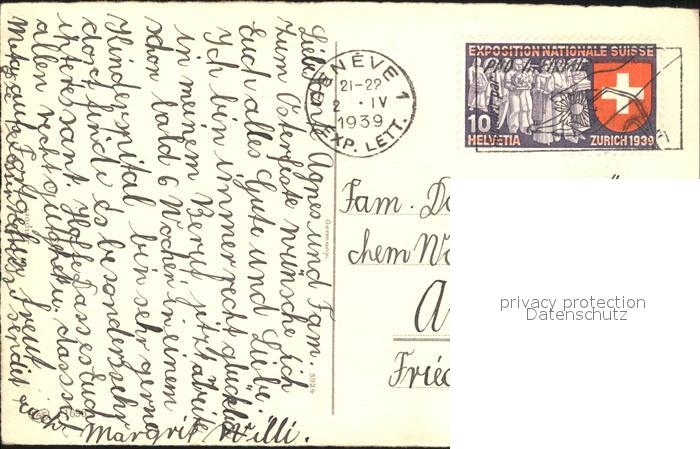 Liebe Tante Agnes und Fam.
Zum Osterfeste wünsche ich
Euch alles Gute und Liebe.
Ich bin immer recht glücklich
in meinem Beruf, jetzt arbeite
schon bald 6 Wochen in einem
Kinderspital, bin sehr gerne
dort, finde es besonders sehr
interessant. Hoffe dass es Euch
allen recht gut geht u. dass
Margrit Willi.
GENÈVE 1
21-22
2 · IV
1939
EXP. LETT.
EXPOSITION NATIONALE SUISSE
10
HELVETIA
ZURICH 1939
Germany.
5924
Fam. Do
chem W
A
Fried
privacy protection
Datenschutz